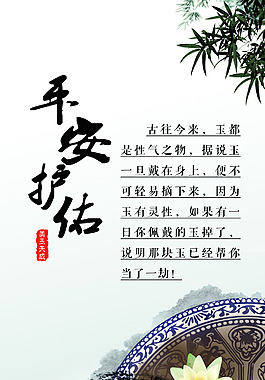 平安护佑
美玉天成
古往今来，玉都
是性气之物，据说玉
一旦戴在身上，便不
可轻易摘下来，因为
玉有灵性，如果有一
日你佩戴的玉掉了，
说明那块玉已经帮你
当了一劫！